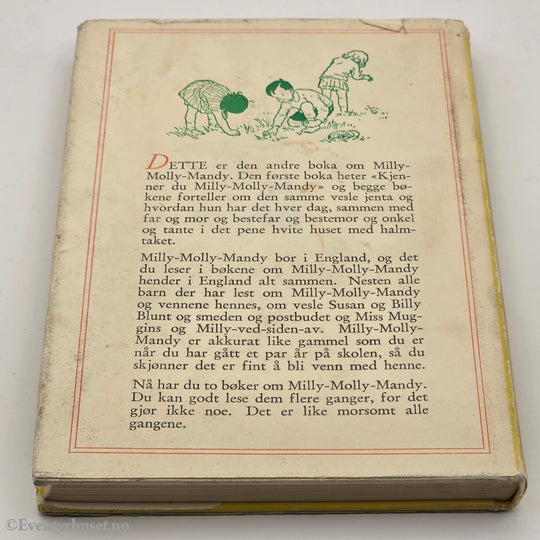 DETTE er den andre boka om Milly-
Molly-Mandy. Den første boka heter «Kjen-
ner du Milly-Molly-Mandy» og begge bø-
kene forteller om den samme vesle jenta og
hvordan hun har det hver dag, sammen med
far og mor og bestefar og bestemor og onkel
og tante i det pene hvite huset med halm-
taket.
Milly-Molly-Mandy bor i England, og det
du leser i bøkene om Milly-Molly-Mandy
hender i England alt sammen. Nesten alle
barn der har lest om Milly-Molly-Mandy
og vennene hennes, om vesle Susan og Billy
Blunt og smeden og postbudet og Miss Mug-
gins og Milly-ved-siden-av. Milly-Molly-
Mandy er akkurat like gammel som du er
når du har gått et par år på skolen, så du
skjønner det er fint å bli venn med henne.
Nå har du to bøker om Milly-Molly-Mandy.
Du kan godt lese dem flere ganger, for det
gjør ikke noe. Det er like morsomt alle
gangene.
©Eventyrhuset.no